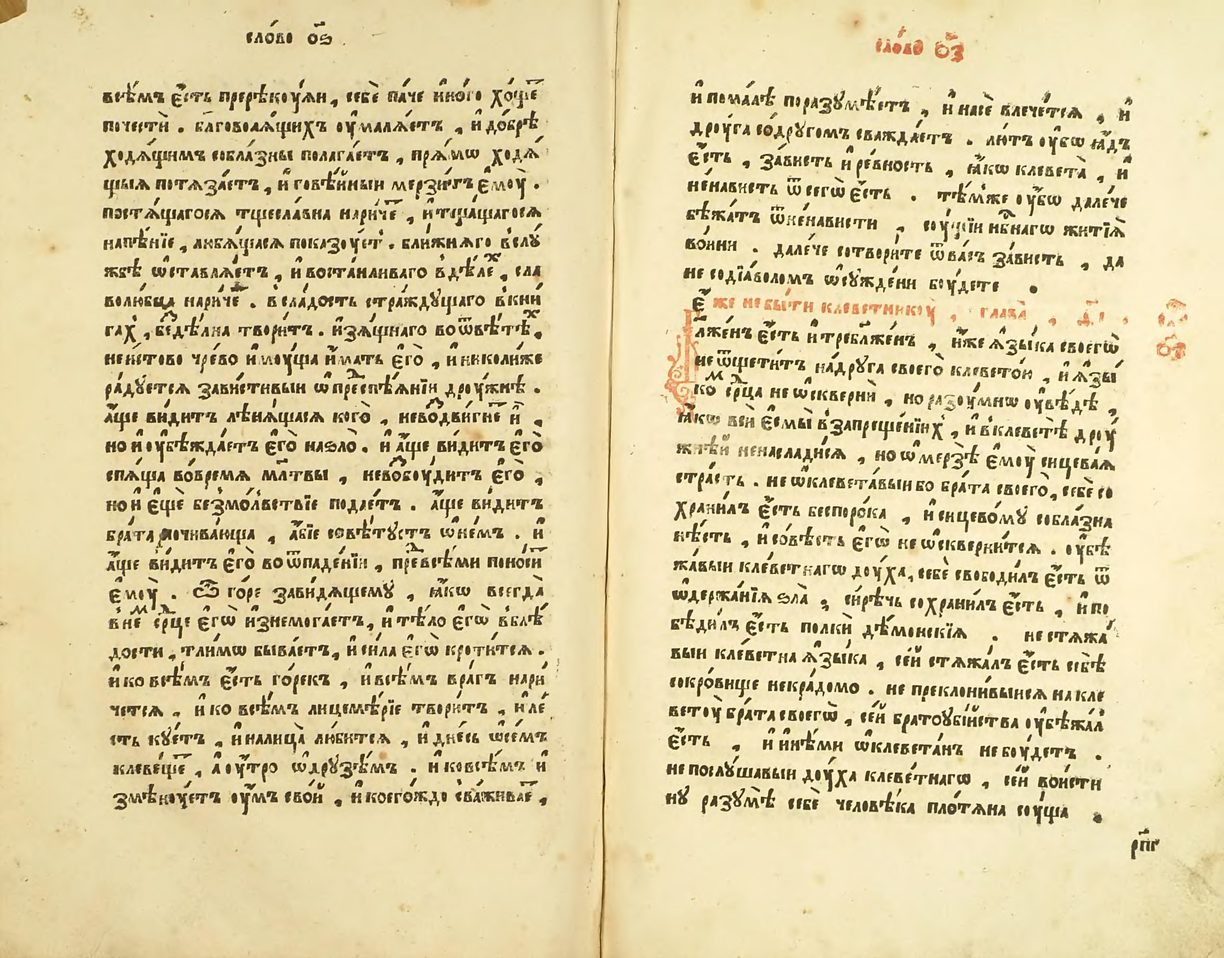 сло́во о҃ѕ
всѣ́мъ є҆́сть прерѣкоу́ѧи , себѐ па́че и҆но́го хо́щеⷮ
поче́сти . бл҃говолѧ́щихъ оу҆малѧ́етъ , и҆ до́брѣ
ходѧ́щимъ собла́зны полага́етъ , прѧ́мѡ ходѧ́
щыѧ потѧза́етъ , и҆ говѣ́йныи мерзи́тъ є҆моу̀ .
постѧ́щагосѧ тщесла́вна нариче́ⷮ , и҆ тща́щагосѧ
на пѣ́нїе , любѧ́щасѧ показоу́етⸯ . бли́жнѧго в слꙋ́
жбѣ ѡ҆ставлѧ́етъ , и҆ воста́нливаго в дѣ́леⷯ , сла
волю́бца нариче́ⷮ . в сла́дость стра́ждꙋщаго в кни́
гаⷯ , бездѣ́лна твори́тъ . и҆зѧ́щнаго во ѿвѣ́теⷯ ,
неи́стово чре́во и҆моу́ща и҆́мать є҆го̀ , и҆ николи́же
ра́дꙋетсѧ зави́стивыи ѡ҆ преспѣѧ́нїи дрꙋ́жнѣ .
а҆́ще ви́дитъ лѣнѧ́щасѧ кого̀ , не воздви́гнеⷮ и҆̀ ,
но и҆ оу҆бѣжда́етъ є҆го̀ на ѕло̀ . и҆ а҆́ще ви́дитъ є҆го̀
спѧ́ща во́ времѧ мл҃твы , не возбоу́дитъ є҆го̀ ,
но и҆ є҆щѐ безмо́лвствїе пода́етъ . а҆́ще ви́дитъ
бра́та почива́юща , а҆́бїе совѣ́тꙋетъ ѡ҆ не́мъ . и҆
а҆́ще ви́дитъ є҆го̀ во ѿпаде́нїи , предⸯ всѣ́ми поно́ситⸯ
є҆моу̀ . Ѽ го́ре зави́дѧщемꙋ , ꙗ҆́кѡ всегда̀
в неⷨ срⷣце є҆гѡ̀ и҆знемога́етъ , и҆ тѣ́ло є҆гѡ̀ в блѣ́
дости , тли́мѡ быва́етъ , и҆ си́ла є҆гѡ̀ кроти́тсѧ .
и҆ ко всѣ́мъ є҆́сть го́рекъ , и҆ всѣ́мъ вра́гъ нари
че́тсѧ , и҆ ко всѣ́мъ лицемѣ́рїе твори́тъ , и҆ ле́
сть кꙋ́етъ , и҆ на лица̀ лю́битсѧ , и҆ дне́сь ѡ҆ се́мъ
клеве́щеⷮ , а҆ оу҆́тро ѡ҆ дрꙋзѣ́мъ . и҆ ко всѣ́мъ и҆
змѣноу́етъ оу҆́мъ сво́й , и҆ коего́ждо сва́живаеⷮ ,
сло́во о҃з
и҆ по ма́лѣ поразꙋмѣ́етъ , и҆ на се́ѐ влече́тсѧ , и҆
дроу́га со́ дрꙋгомъ сважда́етъ . лю́тъ оу҆́бѡ ꙗ҆́дъ
є҆́сть , за́висть и҆ ре́вность , ꙗ҆́кѡ клевета̀ , и҆
не́нависть ѿ сегѡ̀ є҆́сть . тѣ́мже оу҆́бѡ дале́че
бѣжа́тъ ѿ не́нависти , соу́щїи нбⷭ҇наго житїѧ̀
во́ини . дале́че сотвори́те ѿ ва́съ за́висть , да
не со дїа́воломъ ѡ҆сꙋжде́ни боу́дете .
Є҆́же не бы́ти клеветникоу̀ , глава̀ , д҃ .
лже́нъ є҆́сть и҆ требла́женъ , и҆́же ѧ҆зы́ка своегѡ̀
не ѿщети́тъ на дрꙋ́га своего̀ клевето́ю , и҆ ѧ҆зы́
комⸯ срⷣца не ѡ҆скверни́ , но разоу́мнѡ оу҆вѣ́дѣ ,
ꙗ҆́кѡ всѝ є҆смы̀ в запреще́нїихъ , и҆ в клеветѣ̀ дроу́
жнѣй не наслади́сѧ , но ѡ҆мерзѣ̀ є҆моу̀ сицева́ѧ
стра́сть . не ѡ҆клевета́выи бо бра́та своего̀ , себѐ со
храни́лъ є҆́сть беспоро́ка , и҆ сицево́мꙋ собла́зна
нѣ́сть , и҆ со́вѣсть є҆гѡ̀ не ѡ҆скверни́тсѧ . оу҆бѣ
жа́выи клеве́тнагѡ дꙋ́ха , себѐ свободи́лъ є҆́сть ѿ
ѡ҆держа́нїѧ ѕла̀ , си́рѣчь сохрани́лъ є҆́сть , и҆ по
бѣди́лъ є҆́сть полкѝ дѣ́монскїѧ . не стѧжа́
выи клеве́тна ѧ҆зы́ка , се́й стѧжа́лъ є҆́сть себѣ̀
сокро́вище некра́домо . не преклони́выисѧ на кле
ветоу̀ бра́та своегѡ̀ , се́й братоуби́йства оу҆бѣжа́л
є҆́сть , и҆ и҆нѣ́ми ѡ҆клевета́нъ не боу́детъ .
не послꙋ́шавыи доу́ха клеве́тнагѡ , се́й вои́сти
нꙋ разꙋмѣ̀ себѐ человѣ́ка пло́тѧна соу́ща .
рп҃г